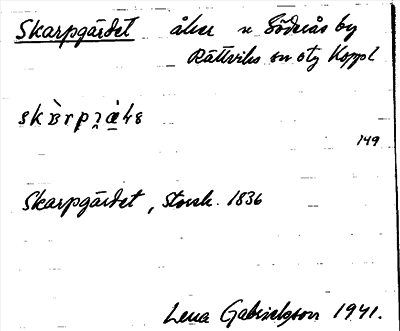 Skarpgärdet åker n Söderås by
Rättviks sn otg Koppl
149
Skarpgärdet, Storsk. 1836
Lena Gabrielsson 1941.